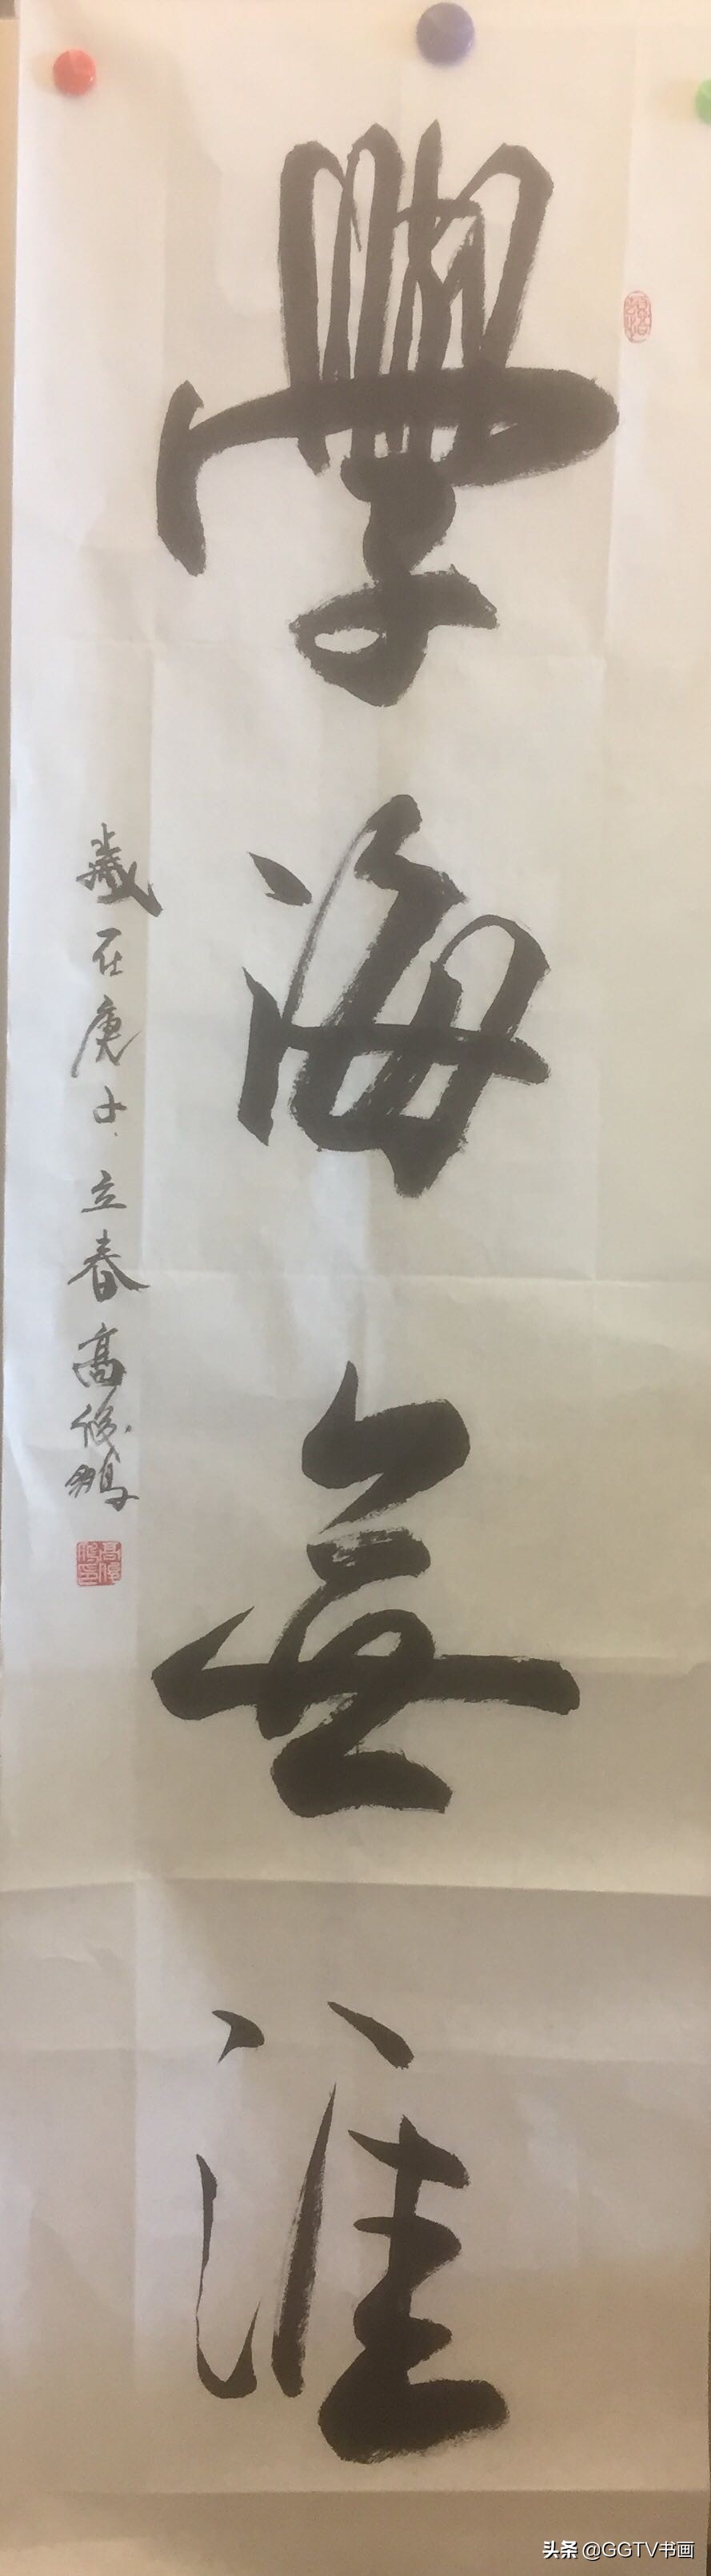 學海無涯
歲在庚子立春高俊鵬
头条 @GGTV书画